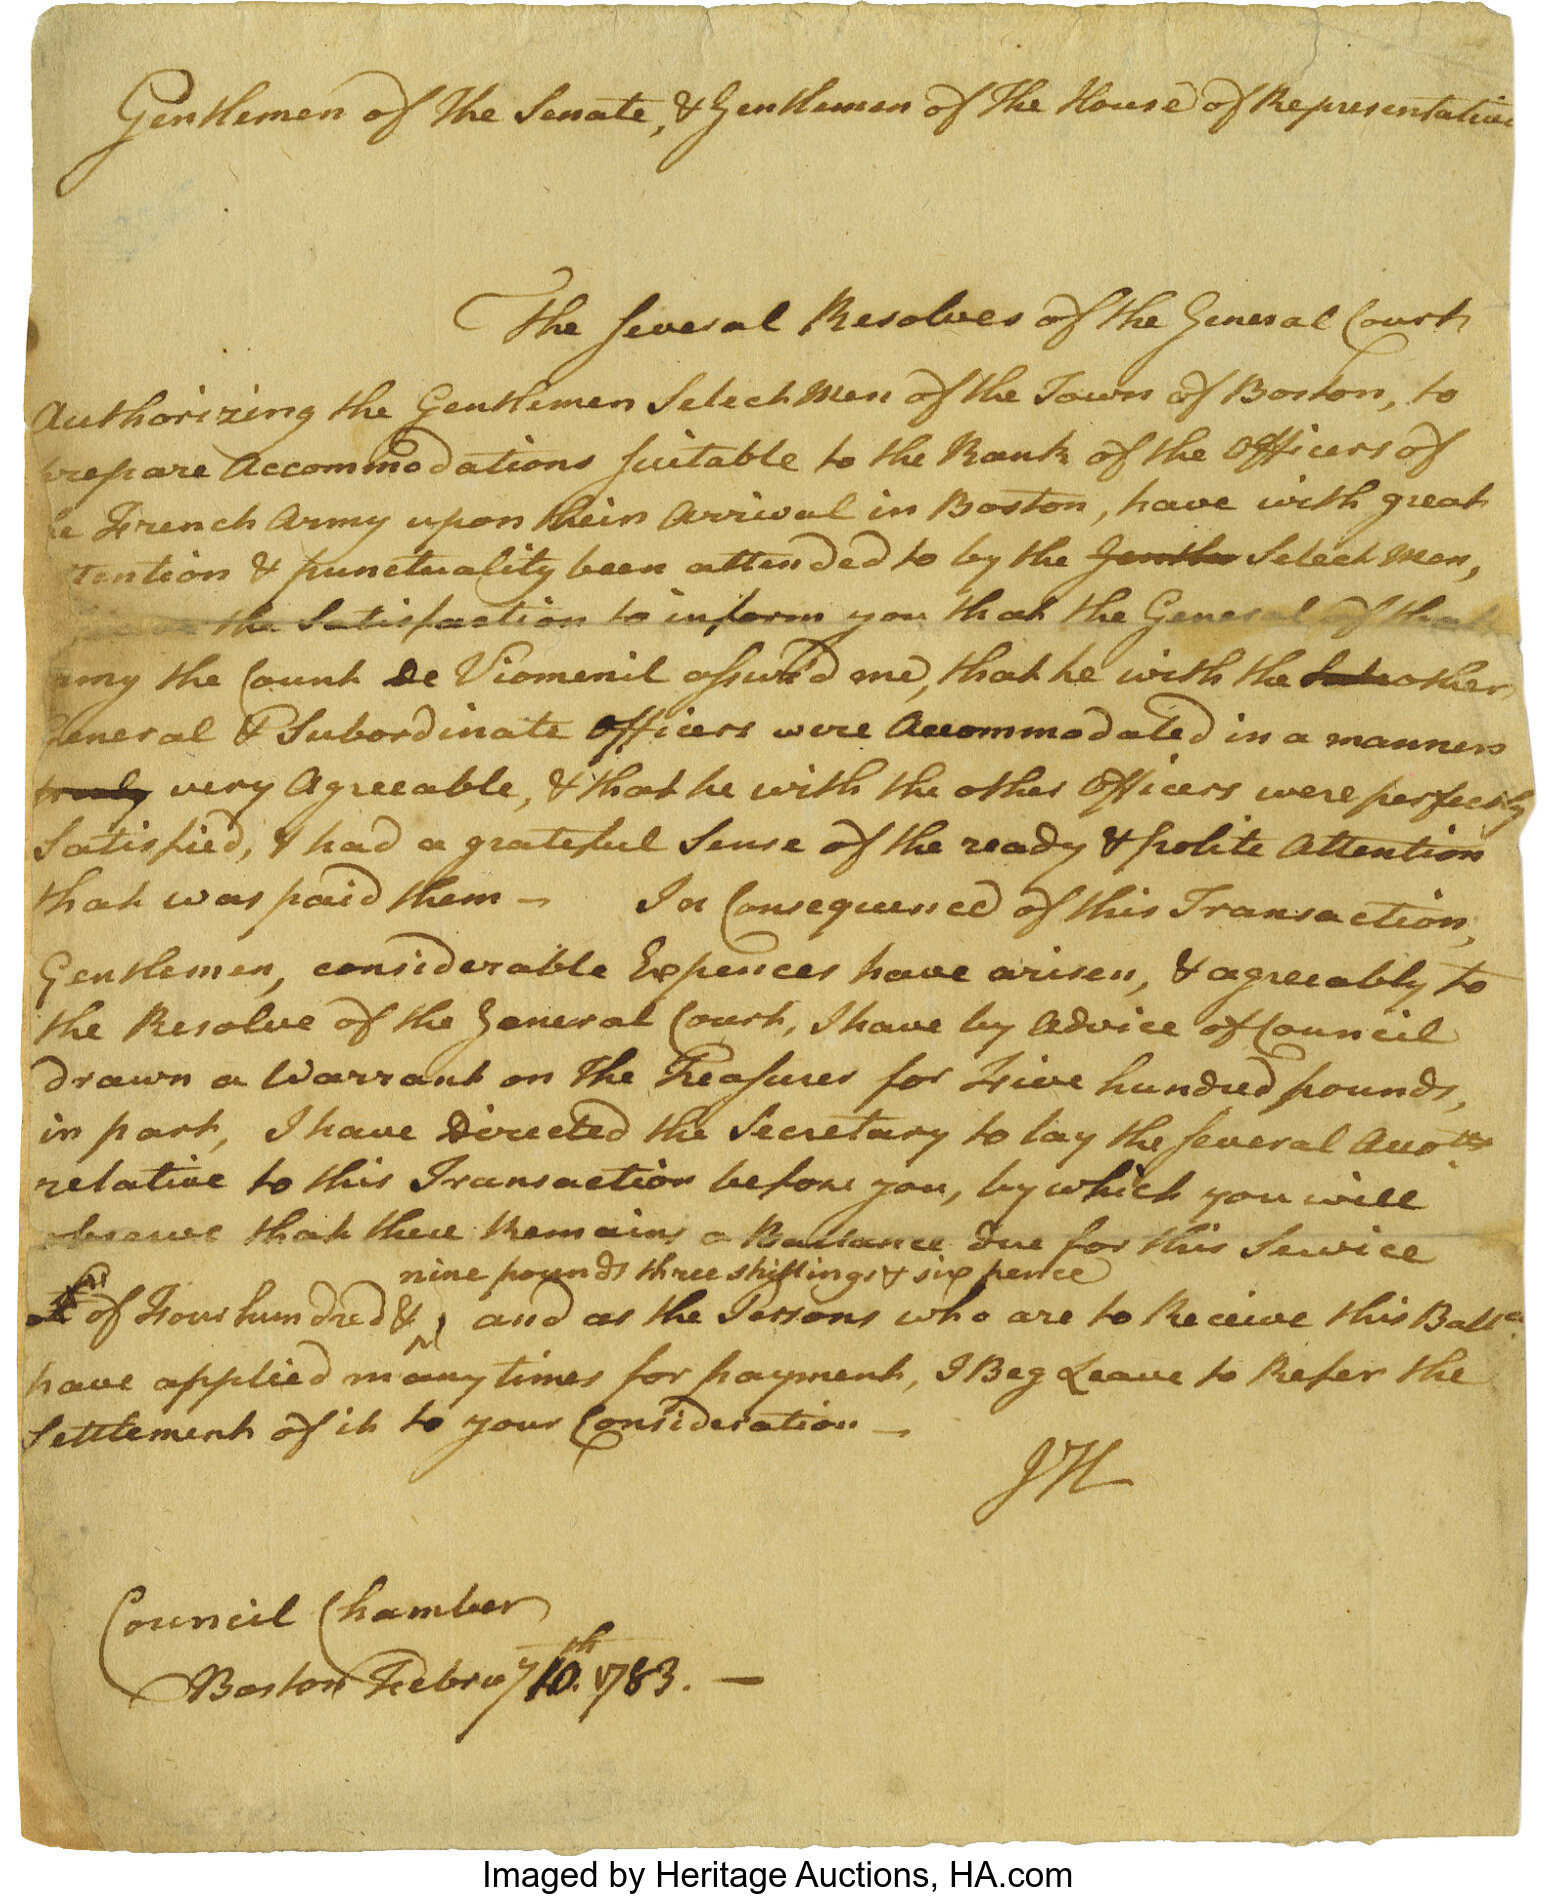 Gentlemen of The Senate, & Gentlemen of The House of Representative
The several Resolves of the General Court
Authorizing the Gentlemen Select Men of the Town of Boston, to
prepare Accommodations suitable to the Rank of the Officers of
he French Army upon their Arrival in Boston, have with great
ttention & punctuality been attended to by the Gentle Select Men,
the Satisfaction to inform you that the General of that
rmy the Count De Viomenil assur'd me, that he with the other
General & Subordinate Officers were Accommodated in a manner
truly very Agreeable, & that he with the other Officers were perfectly
Satisfied, & had a grateful Sense of the ready & polite Attention
that was paid them — In Consequence of this Transaction,
Gentlemen, considerable Expences have arisen, & agreeably to
the Resolve of the General Court, I have by Advice of Council
drawn a Warrant on The Treasurer for Five hundred pounds,
in part, I have Directed the Secretary to lay the several Accotts
relative to this Transaction before you, by which you will
observe that there Remains a Ballance due for this Service
nine pounds three shillings & six pence
of Four hundred & , and as the Persons who are to Receive this Ballce
have applied many times for payment, I Beg Leave to Refer the
Settlement of it to your Consideration —
JH
Council Chamber
Boston Febry 10th. 1783. —
Imaged by Heritage Auctions, HA.com